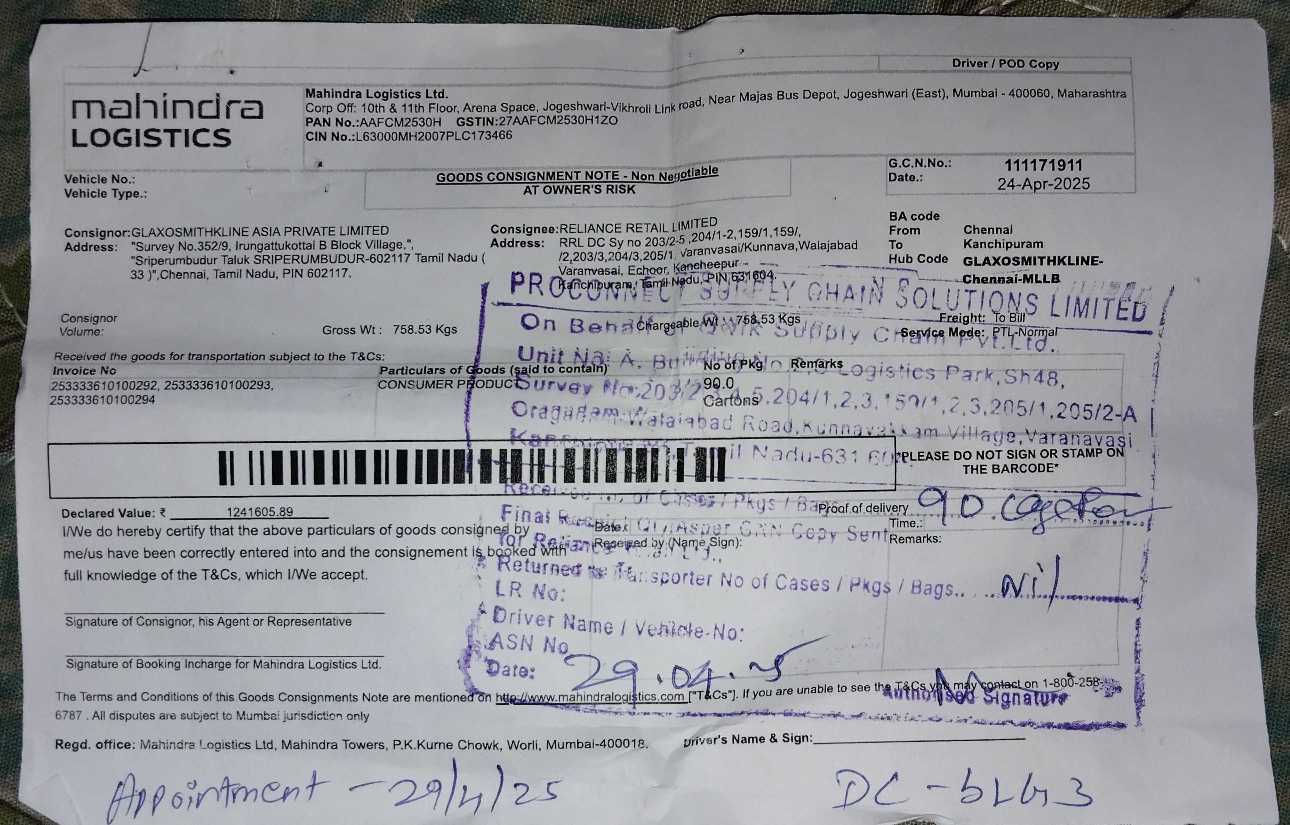 Driver / POD Copy
mahindra
LOGISTICS
Mahindra Logistics Ltd.
Corp Off: 10th & 11th Floor, Arena Space, Jogeshwari-Vikhroli Link road, Near Majas Bus Depot, Jogeshwari (East), Mumbai - 400060, Maharashtra
PAN No.:AAFCM2530H GSTIN:27AAFCM2530H1ZO
CIN No.:L63000MH2007PLC173466
Vehicle No.:
Vehicle Type.:
GOODS CONSIGNMENT NOTE - Non Negotiable
AT OWNER'S RISK
G.C.N.No.: 111171911
Date.: 24-Apr-2025
Consignor:GLAXOSMITHKLINE ASIA PRIVATE LIMITED
Address: "Survey No.352/9, Irungattukottai B Block Village,",
"Sriperumbudur Taluk SRIPERUMBUDUR-602117 Tamil Nadu (
33 )",Chennai, Tamil Nadu, PIN 602117.
Consignee:RELIANCE RETAIL LIMITED
Address: RRL DC Sy no 203/2-5 ,204/1-2,159/1,159/,
/2,203/3,204/3,205/1, Varanvasai/Kunnava,Walajabad
Varanvasai, Echoor, Kancheepur
Kanchipuram, Tamil Nadu, PIN,631604.
BA code
From Chennai
To Kanchipuram
Hub Code GLAXOSMITHKLINE-
Chennai-MLLB
Consignor
Volume:
Gross Wt : 758.53 Kgs
Chargeable Wt : 758.53 Kgs
Freight: To Bill
Service Mode: PTL-Normal
Received the goods for transportation subject to the T&Cs:
Invoice No
253333610100292, 253333610100293,
253333610100294
Particulars of Goods (said to contain)
CONSUMER PRODUCT
No of Pkg
90.0
Cartons
Remarks
*PLEASE DO NOT SIGN OR STAMP ON
THE BARCODE*
Declared Value: ₹ 1241605.89
I/We do hereby certify that the above particulars of goods consigned by
me/us have been correctly entered into and the consignement is booked with
full knowledge of the T&Cs, which I/We accept.
Proof of delivery
Date.:
Time.:
Received by (Name Sign):
Remarks:
Signature of Consignor, his Agent or Representative
Signature of Booking Incharge for Mahindra Logistics Ltd.
PROCONNECT SUPPLY CHAIN SOLUTIONS LIMITED
On Behalf of Supply Chain Pvt.Ltd.,
Unit No. A, Logistics Park,Sh48,
Survey No:203/2 204/1,2,3,159/1,2,3,205/1,205/2-A
Oragadam-Walajabad Road,Kunnavakkam Village,Varanavasi
Tamil Nadu-631 60
No of Cases / Pkgs / Bags 90
Final Asper GRN Copy Sent
for Reliance
Returned to Transporter No of Cases / Pkgs / Bags.. Nil
LR No:
Driver Name / Vehicle No:
ASN No
Date: 29.04.25
Authorised Signature
The Terms and Conditions of this Goods Consignments Note are mentioned on http://www.mahindralogistics.com ["T&Cs"]. If you are unable to see the T&Cs you may contact on 1-800-258-
6787 . All disputes are subject to Mumbai jurisdiction only
Regd. office: Mahindra Logistics Ltd, Mahindra Towers, P.K.Kurne Chowk, Worli, Mumbai-400018.
Driver's Name & Sign:
Appointment - 29/4/25
DC - bLG3